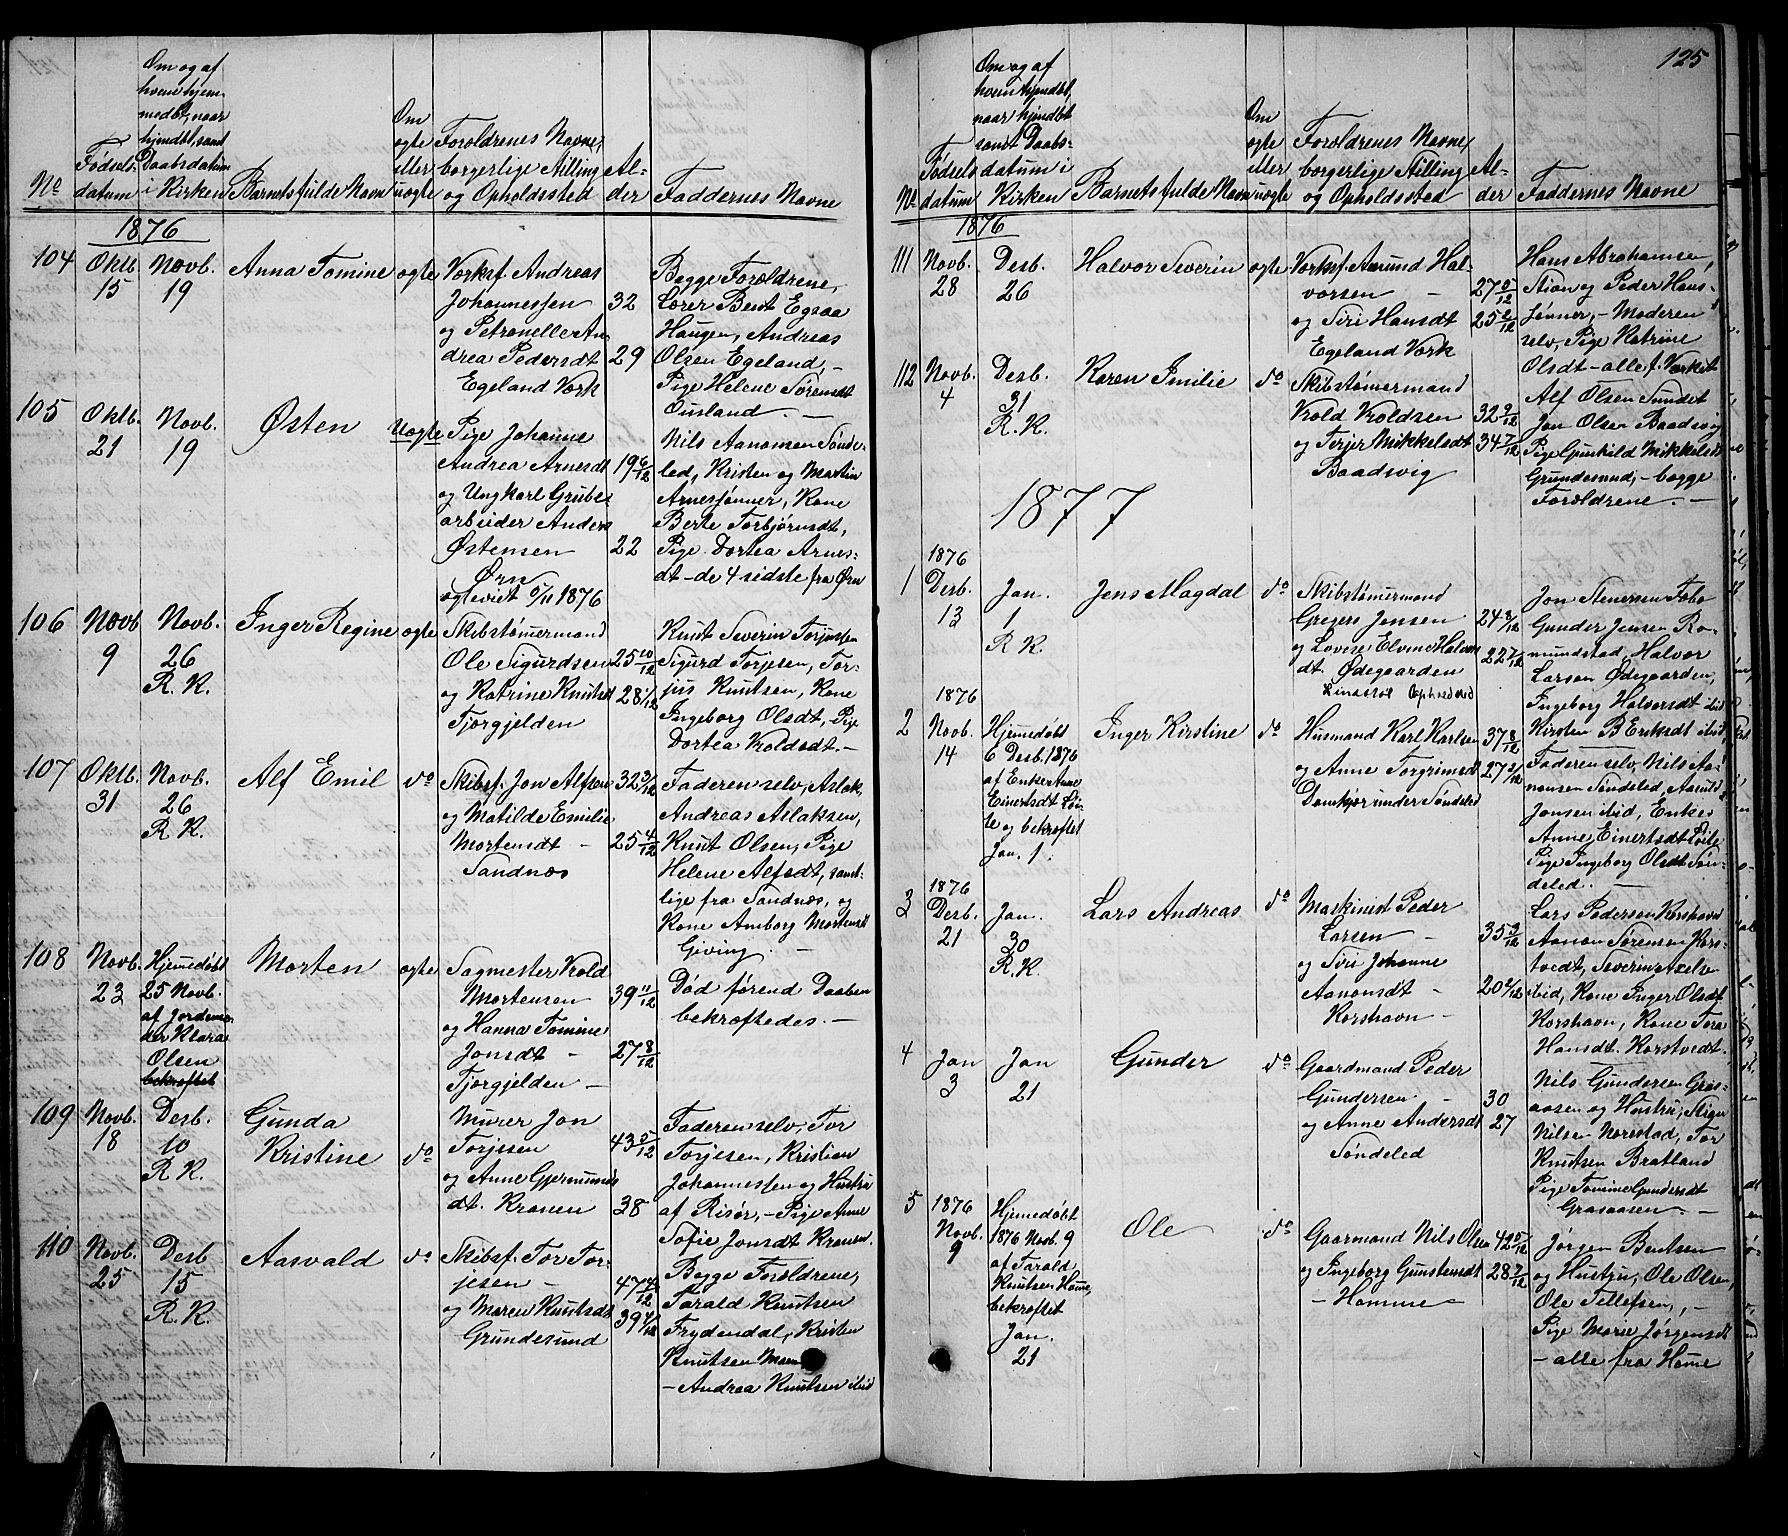 125
No
Fødsels-
datum
Om og af
hvem hjem-
medøbt, naar
hjemdøbt, samt
Daabsdatum
i Kirken
Barnets fulde Navn
Om
ægte
eller
uægte
Forældrenes Navne,
borgerlige Stilling
og Opholdssted
Al-
der
Faddernes Navne
1876
104
Oktb.
15
Novb.
19
Anna Tomine
ægte
Værksf. Andreas
Johannessen
og Petronelle An-
drea Pedersdt
Egeland Værk
32
29
Begge Forældrene,
Lærer Bent Egsaa
Haugen, Andreas
Olsen Egeland, -
Pige Helene Sørensdt
Ousland. -
105
Oktb.
21
Novb.
19
Østen
Uægte
Pige Johanne
Andrea Arnesdt
og Ungkarl Grube-
arbeider Anders
Østensen
Ørn
ægteviet 5/11 1876
19 6/12
22
Nils Aanonsen Sønde-
led, Kristen og Martin
Arnesønner, Kone
Berte Torbjørnsdt,
Pige Dortea Arnes-
dt - de 4 sidste fra Ørn
106
Novb
9
Novb.
26
R. K.
Inger Regine
ægte
Skibstømmermand
Ole Sigurdsen
og Katrine Knutsdt
Tjorgjelden
25 10/12
28 1/12
Knut Severin Torjussen
Sigurd Torjesen, Tor-
jus Knutsen, Kone
Ingeborg Olsdt, Pige
Dortea Kroldsdt. -
107
Oktb.
31
Novb.
26
R. K.
Alf Emil
do
Skibsf. Jon Alfsen
og Matilde Emilie
Mortensdt -
Sandnæs
32 3/12
25 4/12
Faderen selv, Aslak,
Andreas Aslaksen,
Knut Olsen, Pige
Helene Alfsdt, samt-
lige fra Sandnæs, og
Kone Amborg Mortensdt
Giving. -
108
Novb.
23
Hjemmedøbt
25 Novb.
af Jordemo-
der Klara
Olsen
bekræftet
Morten
ægte
Sagmester Krold
Mortensen
og Hanna Tomine
Jonsdt -
Tjorgjelden -
39 11/12
27 8/12
Død førend Daaben
bekræftedes. -
109
Novb.
18
Desb.
10
R. K.
Gunda
Kristine
do
Murer Jon
Torjesen
og Anne Gjermunds
dt. Kranen
43 5/12
38
Faderen selv, Tor
Torjesen, Kristian
Johannessen og Hustru
af Risør, - Pige Anne
Sofie Jonsdt Kranen.
110
Novb.
25
Desb
15
R. K.
Aasvald
do
Skibsf. Tor Tor-
jesen -
og Maren Knutsdt
Grundesund
47 4/12
39 4/12
Begge Forældrene,
Tarald Knutsen
Frydendal, Kristen
Knutsen
- Andrea Knutsen ibid
No
Fødsels
datum
Om og af
hvem hjemdøbt,
naar hjemdøbt
samt Daabs-
datum i
Kirken
Barnets fulde Navn
Om
ægte
eller
uægte
Forældrenes Navne,
borgerlige Stilling
og Opholdssted
Al-
der
Faddernes Navne
1876
111
Novb.
28
Desb.
26
Halvor Severin
ægte
Værksf. Amund Hal-
vorsen -
og Siri Hansdt
Egeland Værk
27 5/12
25 2/12
Hans Abrahamsen,
Stian og Peder Hans-
sønner, - Moderen
selv, Pige Katrine
Olsdt - alle f. Værket
112
Novb.
4
Desb.
31
R. K.
Karen Emilie
do
Skibstømermand
Krold Kroldsen
og Terjer Mikkelsdt
Baadsvig
32 9/12
34 7/12
Alf Olsen Sundet
Jon Olsen Baadsvig
Pige Gunhild Mikkelsdt
Grundesund, - begge
Forældrene. -
1877
1
1876
Desb.
13
Jan.
1
R. K.
Jens Magdal
do
Skibstømermand
Gregers Jensen
og Lovise Elvine Halvors
dt. Ødegaarden
24 8/12
22 7/12
Jon Stenersen Fobo
Gunder Jensen Ro-
mundstad, Halvor
Larsen Ødegaarden,
Ingeborg Halvorsdt ibid
Kirsten B Eriksdt ibid,
2
1876
Novb.
14
Hjemedøbt
6 Desb. 1876
af Enke Anne
Einertsdt Løi-
te og bekræftet
Jan. 1.
Inger Kirstine
do
Husmand Karl Karlsen
og Anne Torgrimsdt
Damkjær under Søndeled
37 8/12
27 2/12
Faderen selv, Nils Aa-
nonsen Søndeled, Aanund
Jonsen ibid, Enke
Anne Einertsdt Løite
Pige Ingeborg Olsdt Søn-
deled. -
3
1876
Desb.
21
Jan.
30
R. K.
Lars Andreas
do
Maskinist Peder
Larsen -
og Siri Johanne
Aanonsdt -
Korshavn -
35 3/12
20 2/12
Lars Pedersen Korshavn
Aanon Sørensen Kors-
tvedt, Severin Axelsen
ibid, Kone Inger Olsdt
Korshavn, Kone Tora
Hansdt. Korstvedt.
4
Jan
3
Jan
21
Gunder
do
Gaardmand Peder
Gundersen. -
og Anne Andersdt
Søndeled
30
27
Nils Gundersen Gras-
aasen og Hustru, Stian
Nilsen Norestad, Tor
Knutsen Bratland
Pige Tomine Gundersdt
Grasaasen. -
5
1876
Novb.
9
Hjemedøbt
1876 Novb. 9
af Tarald
Knutsen Home,
bekræftet
Jan.
21
Ole
do
Gaarmand Nils Olsen
og Ingeborg Gunstensdt
- Homme -
42 5/12
28 7/12
Jørgen Bentsen
og Hustru, Ole Olsen,
Ole Tellefsen, -
Pige Marie Jørgensdt
- alle fra Home